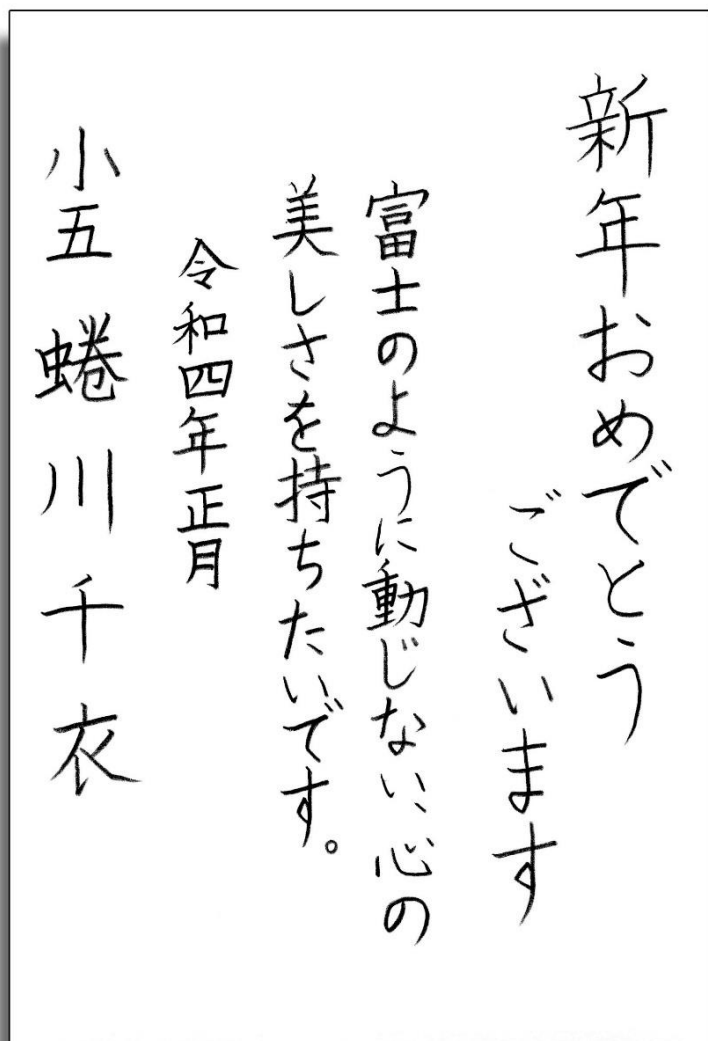 新年おめでとう
ございます
富士のように動じない、心の
美しさを持ちたいです。
令和四年正月
小五 蜷川千衣